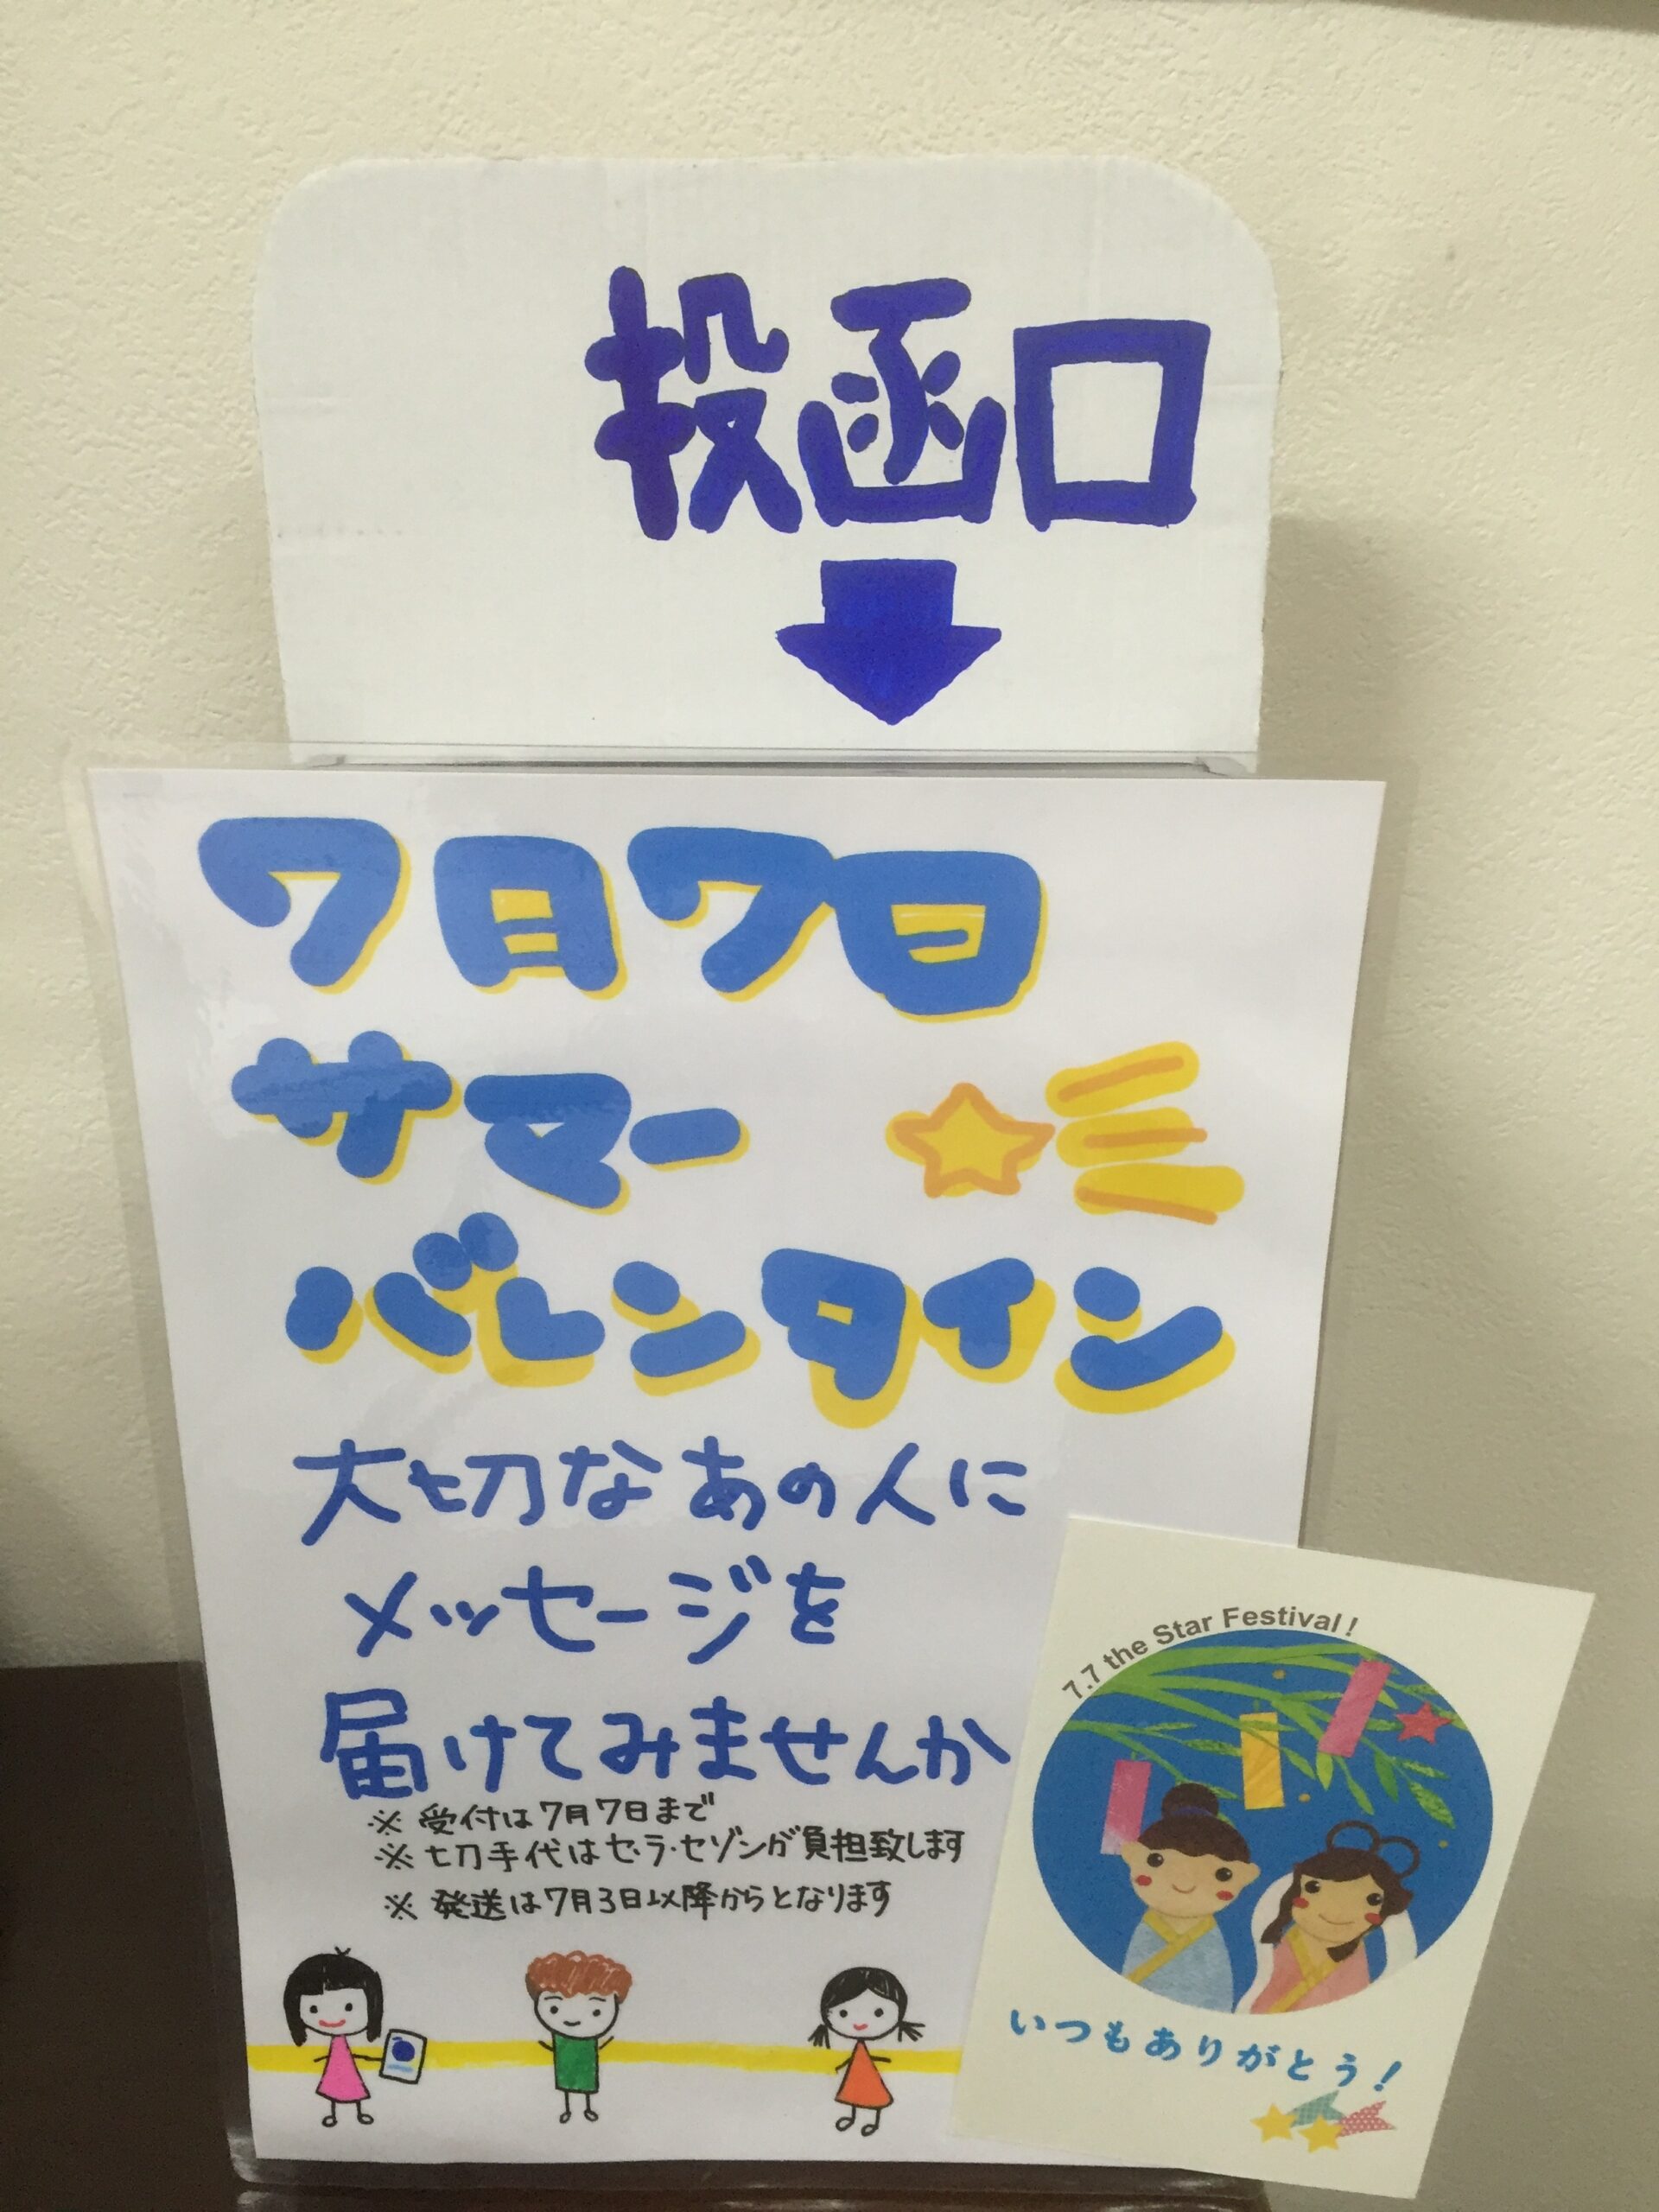 投函口
7月7日
サマー
バレンタイン
大切なあの人に
メッセージを
届けてみませんか
※ 受付は7月7日まで
※ 切手代はセ・ラ・セゾンが負担致します
※ 発送は7月3日以降からとなります
7.7 the Star Festival !
いつもありがとう!